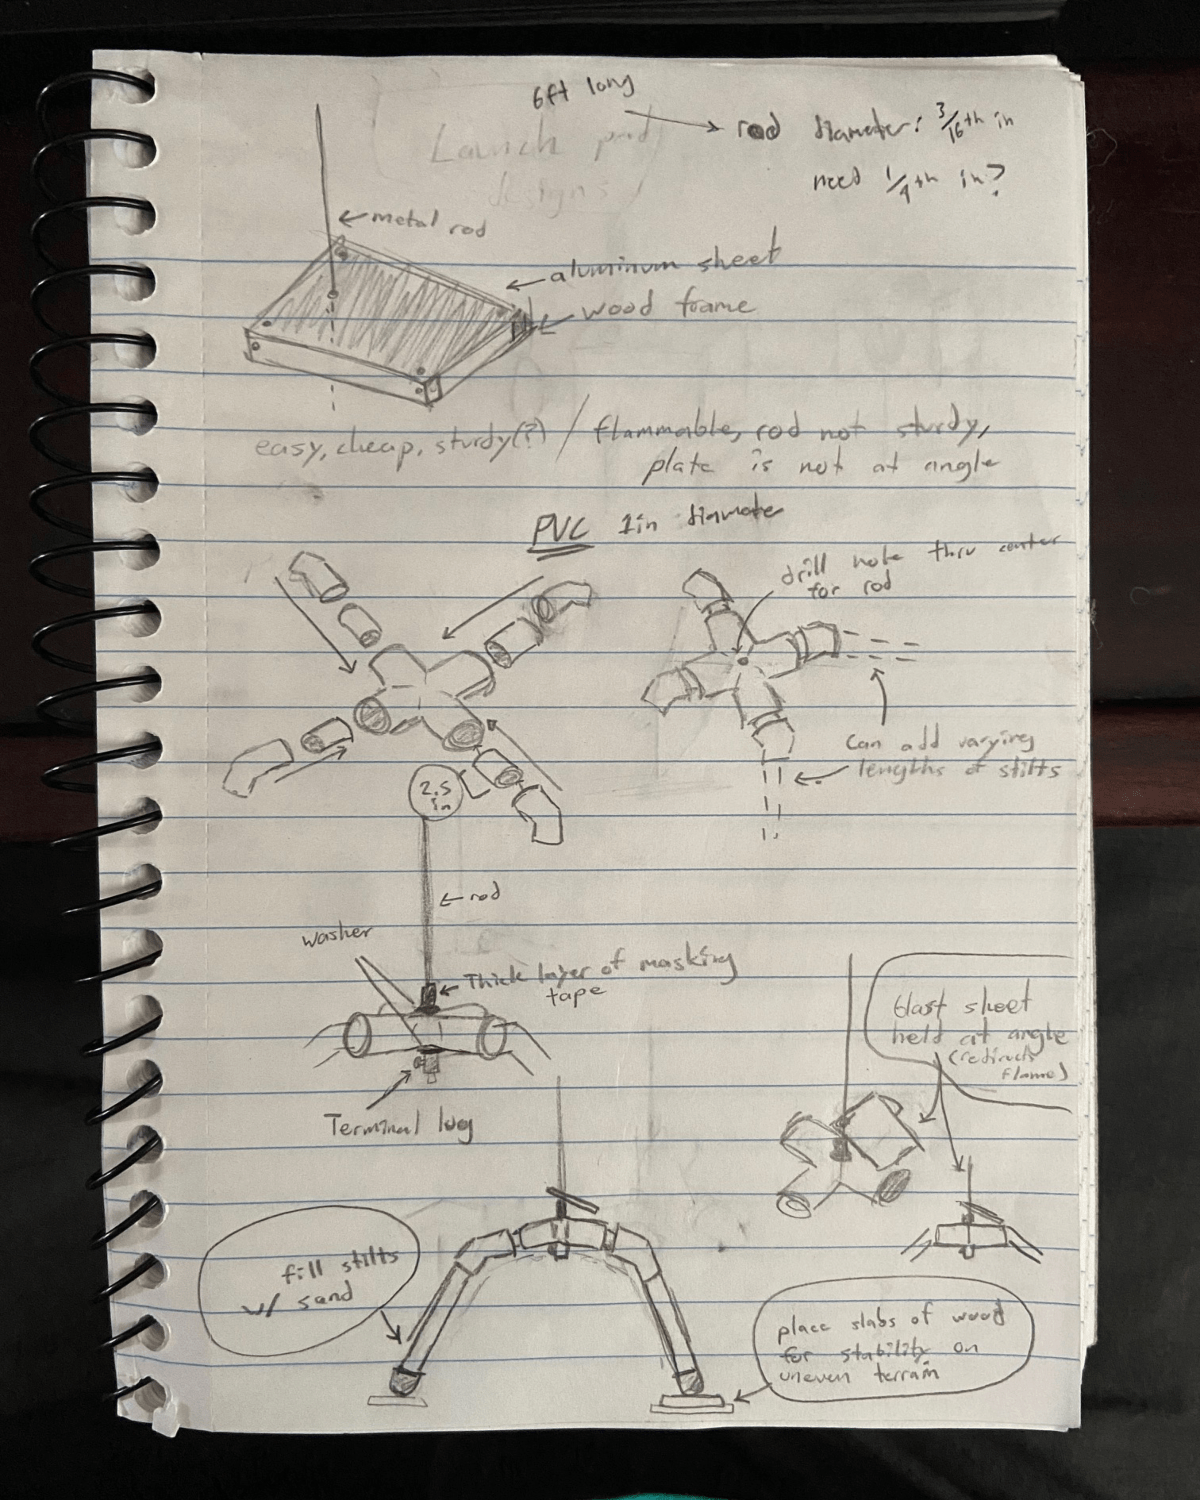 6ft long
Launch pad
designs
rod diameter: 3/16th in
need 1/4th in?
metal rod
aluminum sheet
wood frame
easy, cheap, sturdy(?) / flammable, rod not sturdy,
plate is not at angle
PVC 1in diamater
drill hole thru center
for rod
can add varying
lengths of stilts
2.5
in
rod
washer
Thick layer of masking
tape
Terminal lug
blast sheet
held at angle
(redirects
flame)
fill stilts
w/ sand
place slabs of wood
for stability on
uneven terrain